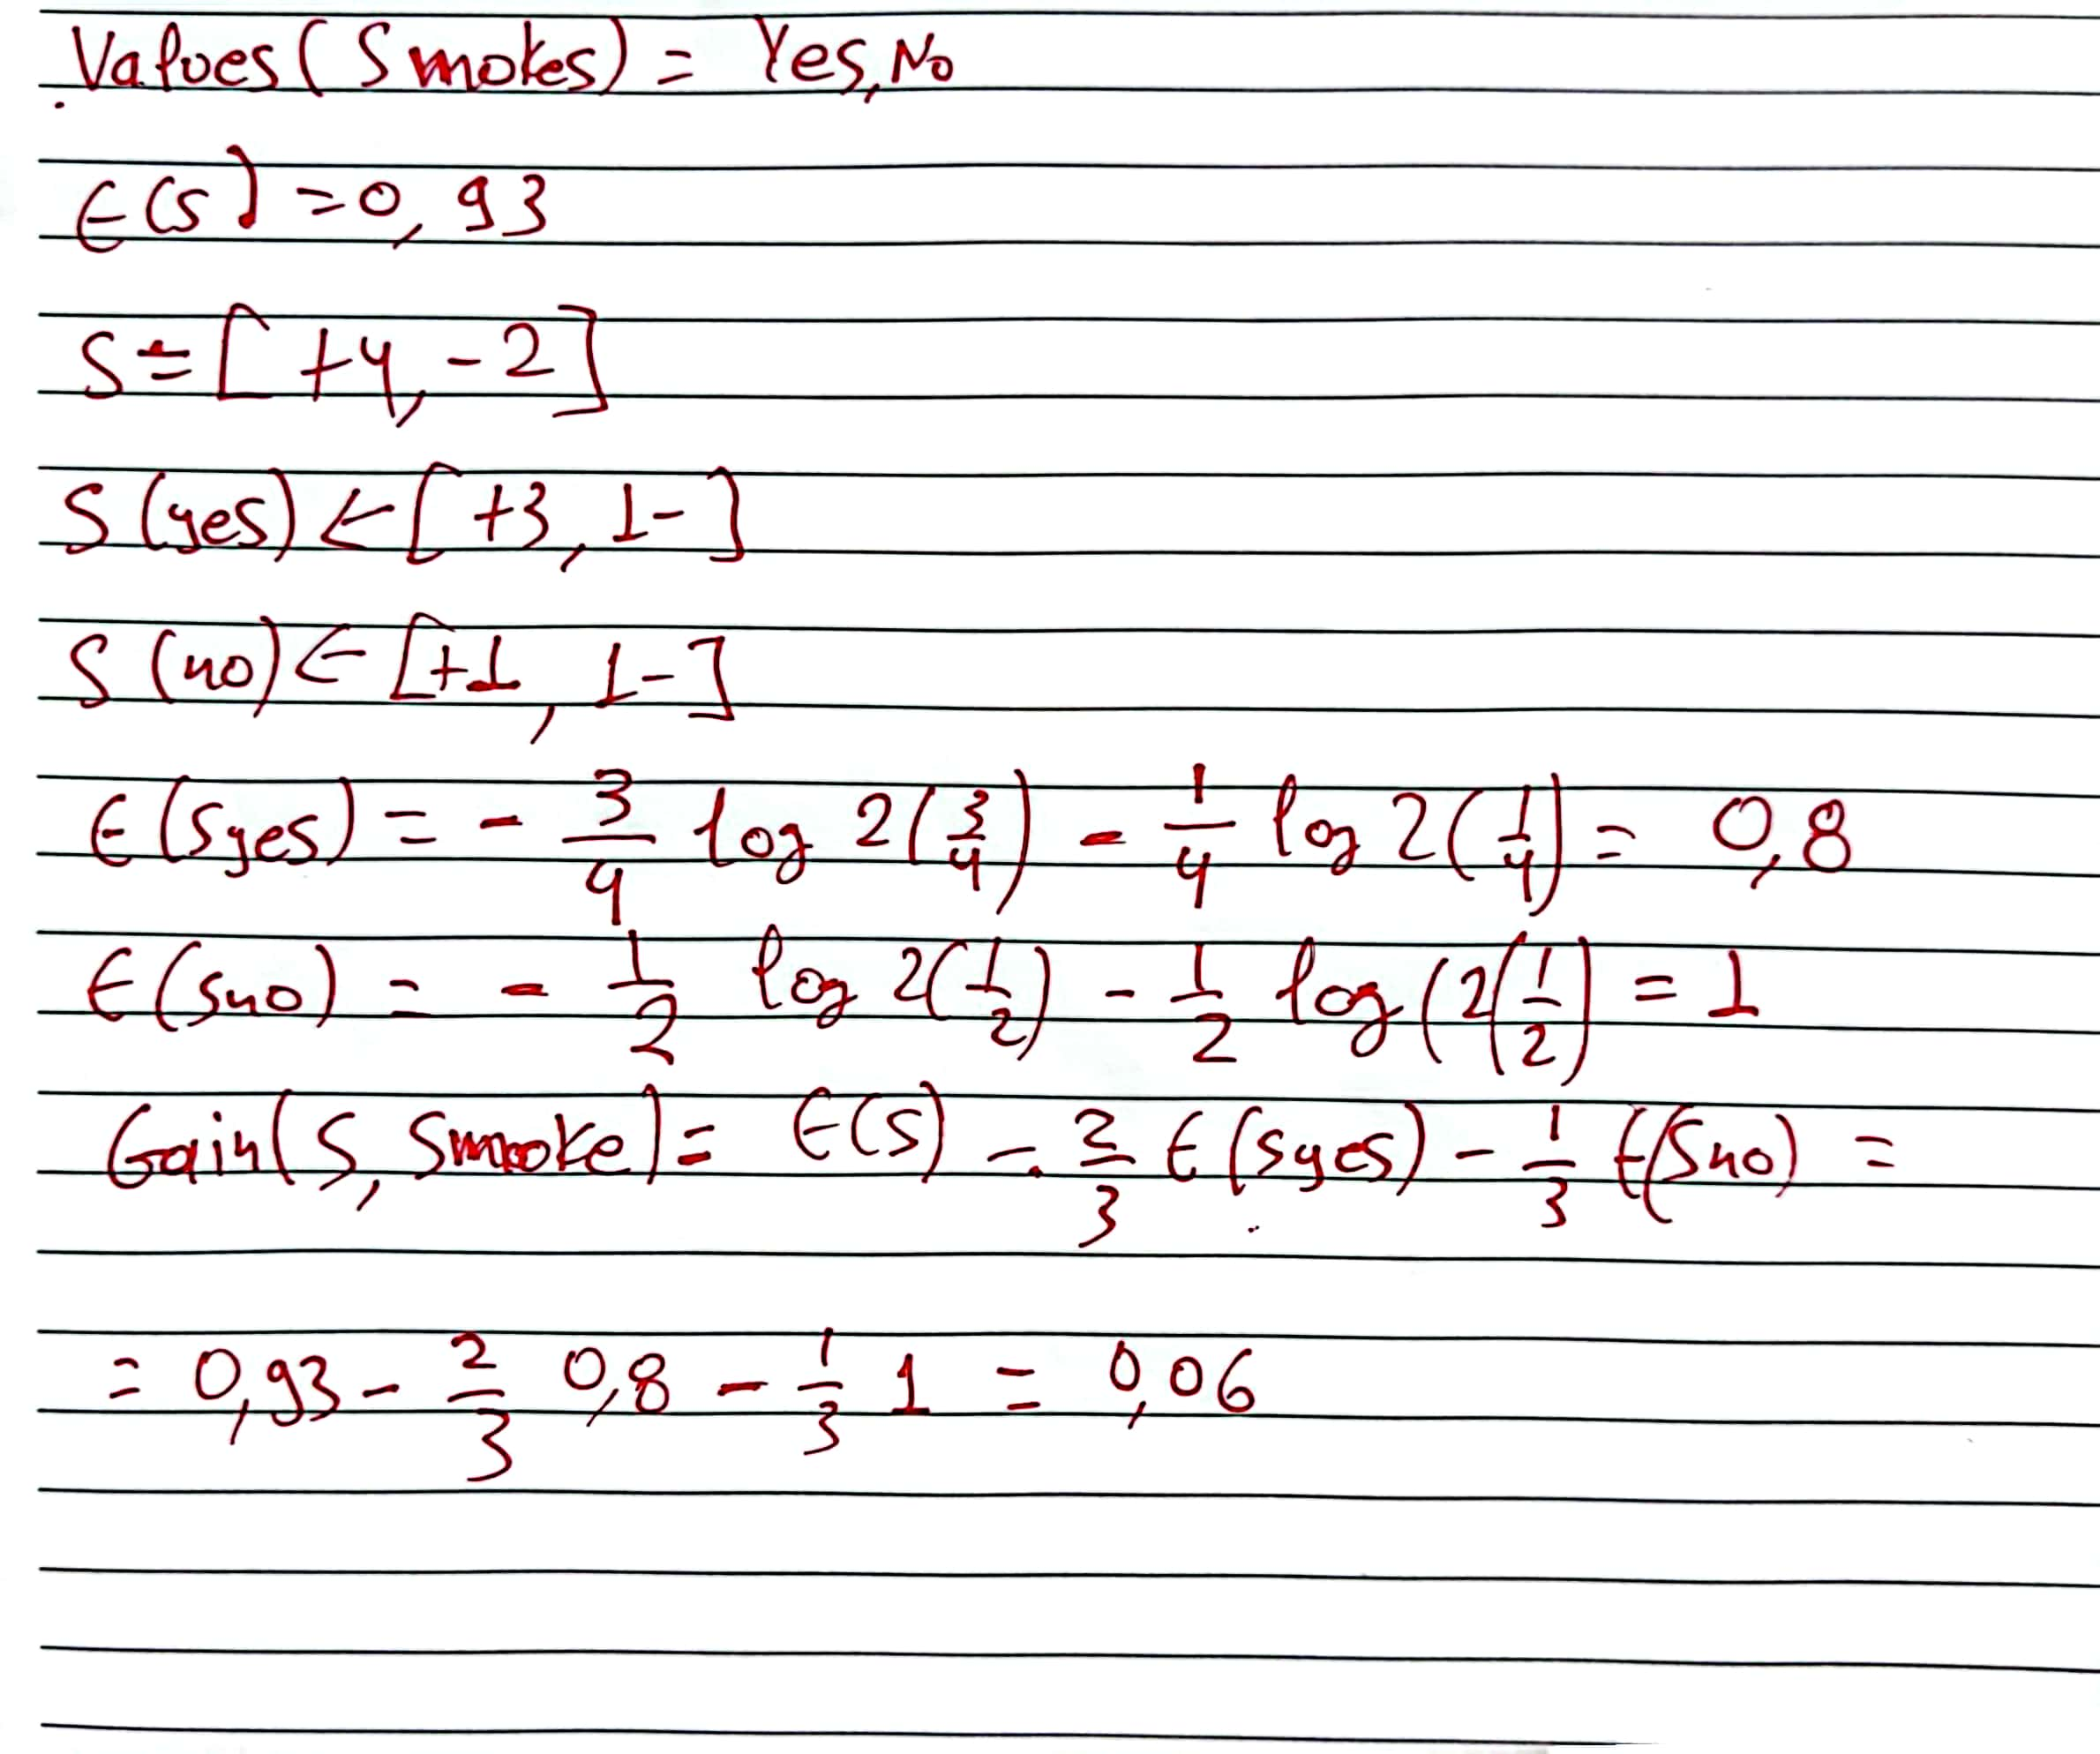 Values(Smokes) = Yes, No
E(S) = 0,93
S = [+4, -2]
S(yes) ← [+3, 1-]
S(no) ← [+1, 1-]
E(Syes) = - 3/4 log 2(3/4) - 1/4 log 2(1/4) = 0,8
E(Sno) = - 1/2 log 2(1/2) - 1/2 log(2(1/2) = 1
Gain(S, Smoke) = E(S) - 2/3 E(Syes) - 1/3 E(Sno) =
= 0,93 - 2/3 0,8 - 1/3 1 = 0,06